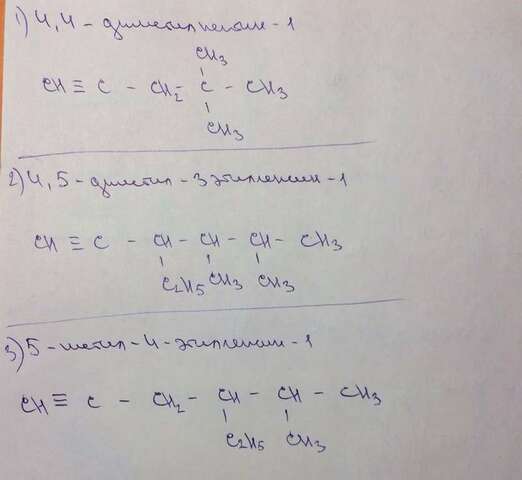 1) 4,4-диметилпентин-1
CH3
CH ≡ C - CH2 - C - CH3
CH3
2) 4,5-диметил-3этилгексин-1
CH ≡ C - CH - CH - CH - CH3
C2H5 CH3 CH3
3) 5-метил-4-этилгексин-1
CH ≡ C - CH2 - CH - CH - CH3
C2H5 CH3